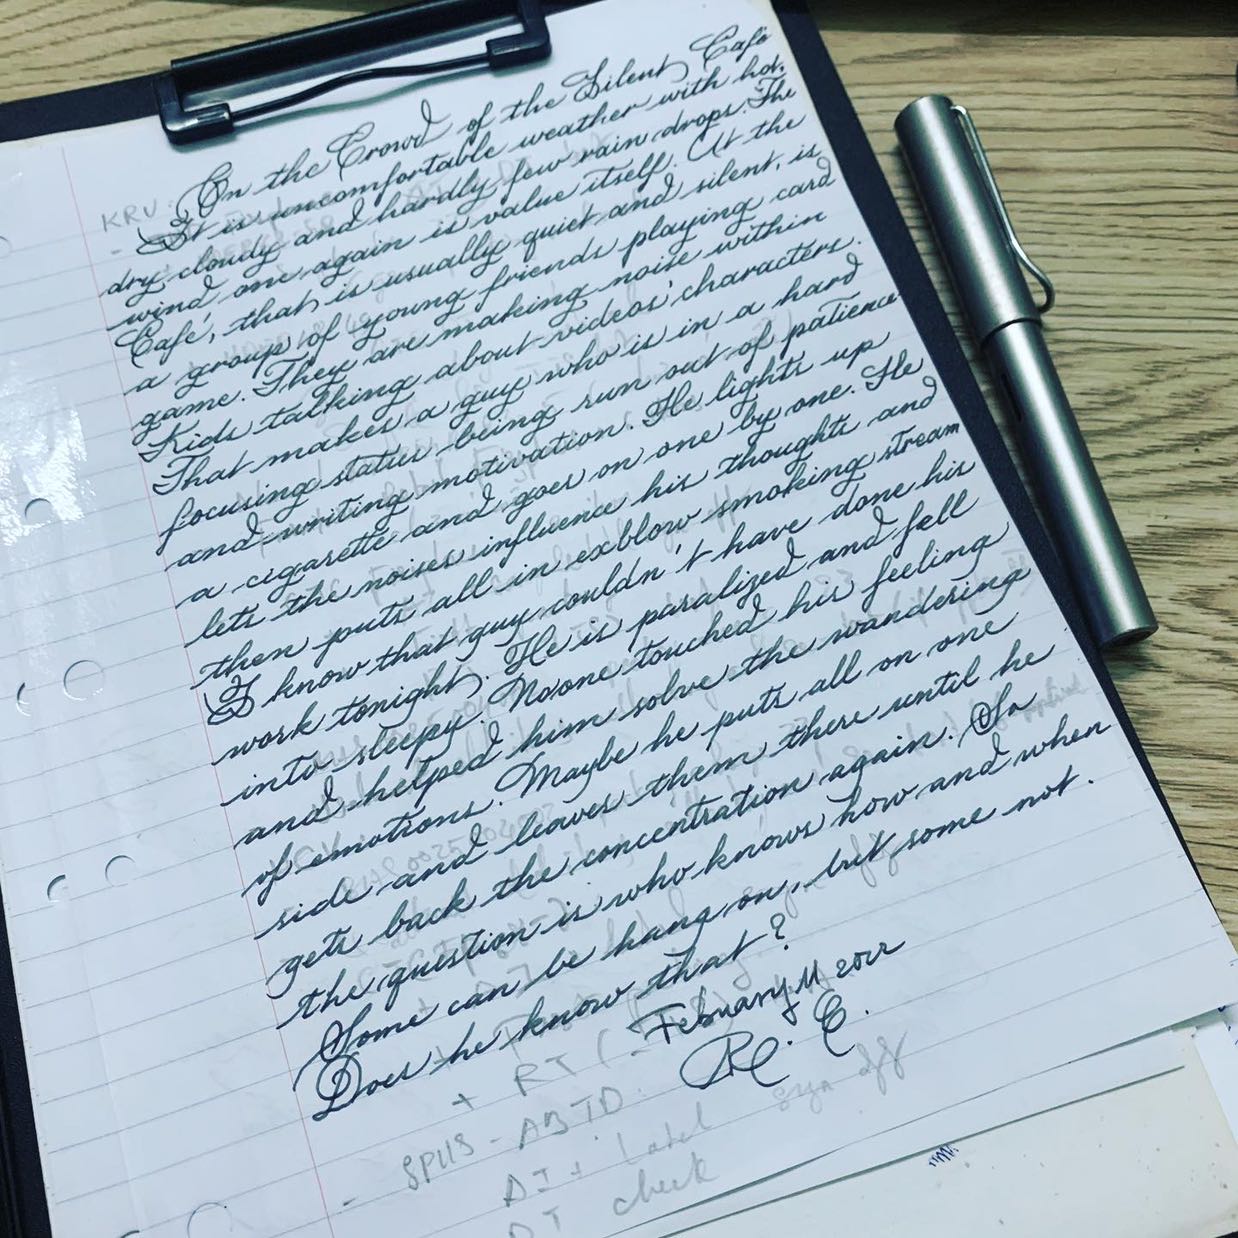 On the Crowd of the Silent Café
KRU.
It is uncomfortable weather with hot,
dry cloudy and hardly few rain drops. The
wind one again is value itself. At the
Café, that is usually quiet and silent, is
a group of young friends playing card
game. They are making noise within
Kids talking about videos' characters.
That makes a guy who is in a hard
focusing status being run out of patience
and writing motivation. He lights up
a cigarette and goes on one by one. He
lets the noises influence his thoughts and
then puts all in exblow smoking stream
I know that guy couldn't have done his
work tonight. He is paralized and fell
into sleepy. Noone touched his feeling
and helped him solve the wandering
of emotions. Maybe he puts all on one
side and leaves them there until he
gets back the concentration again. So
the question is who knows how and when
Some can be hang on, but some not.
Does he know that?
February
R. E.
+ RT (
- SPLIS - ABTD.
sign off
DI + label
DI check